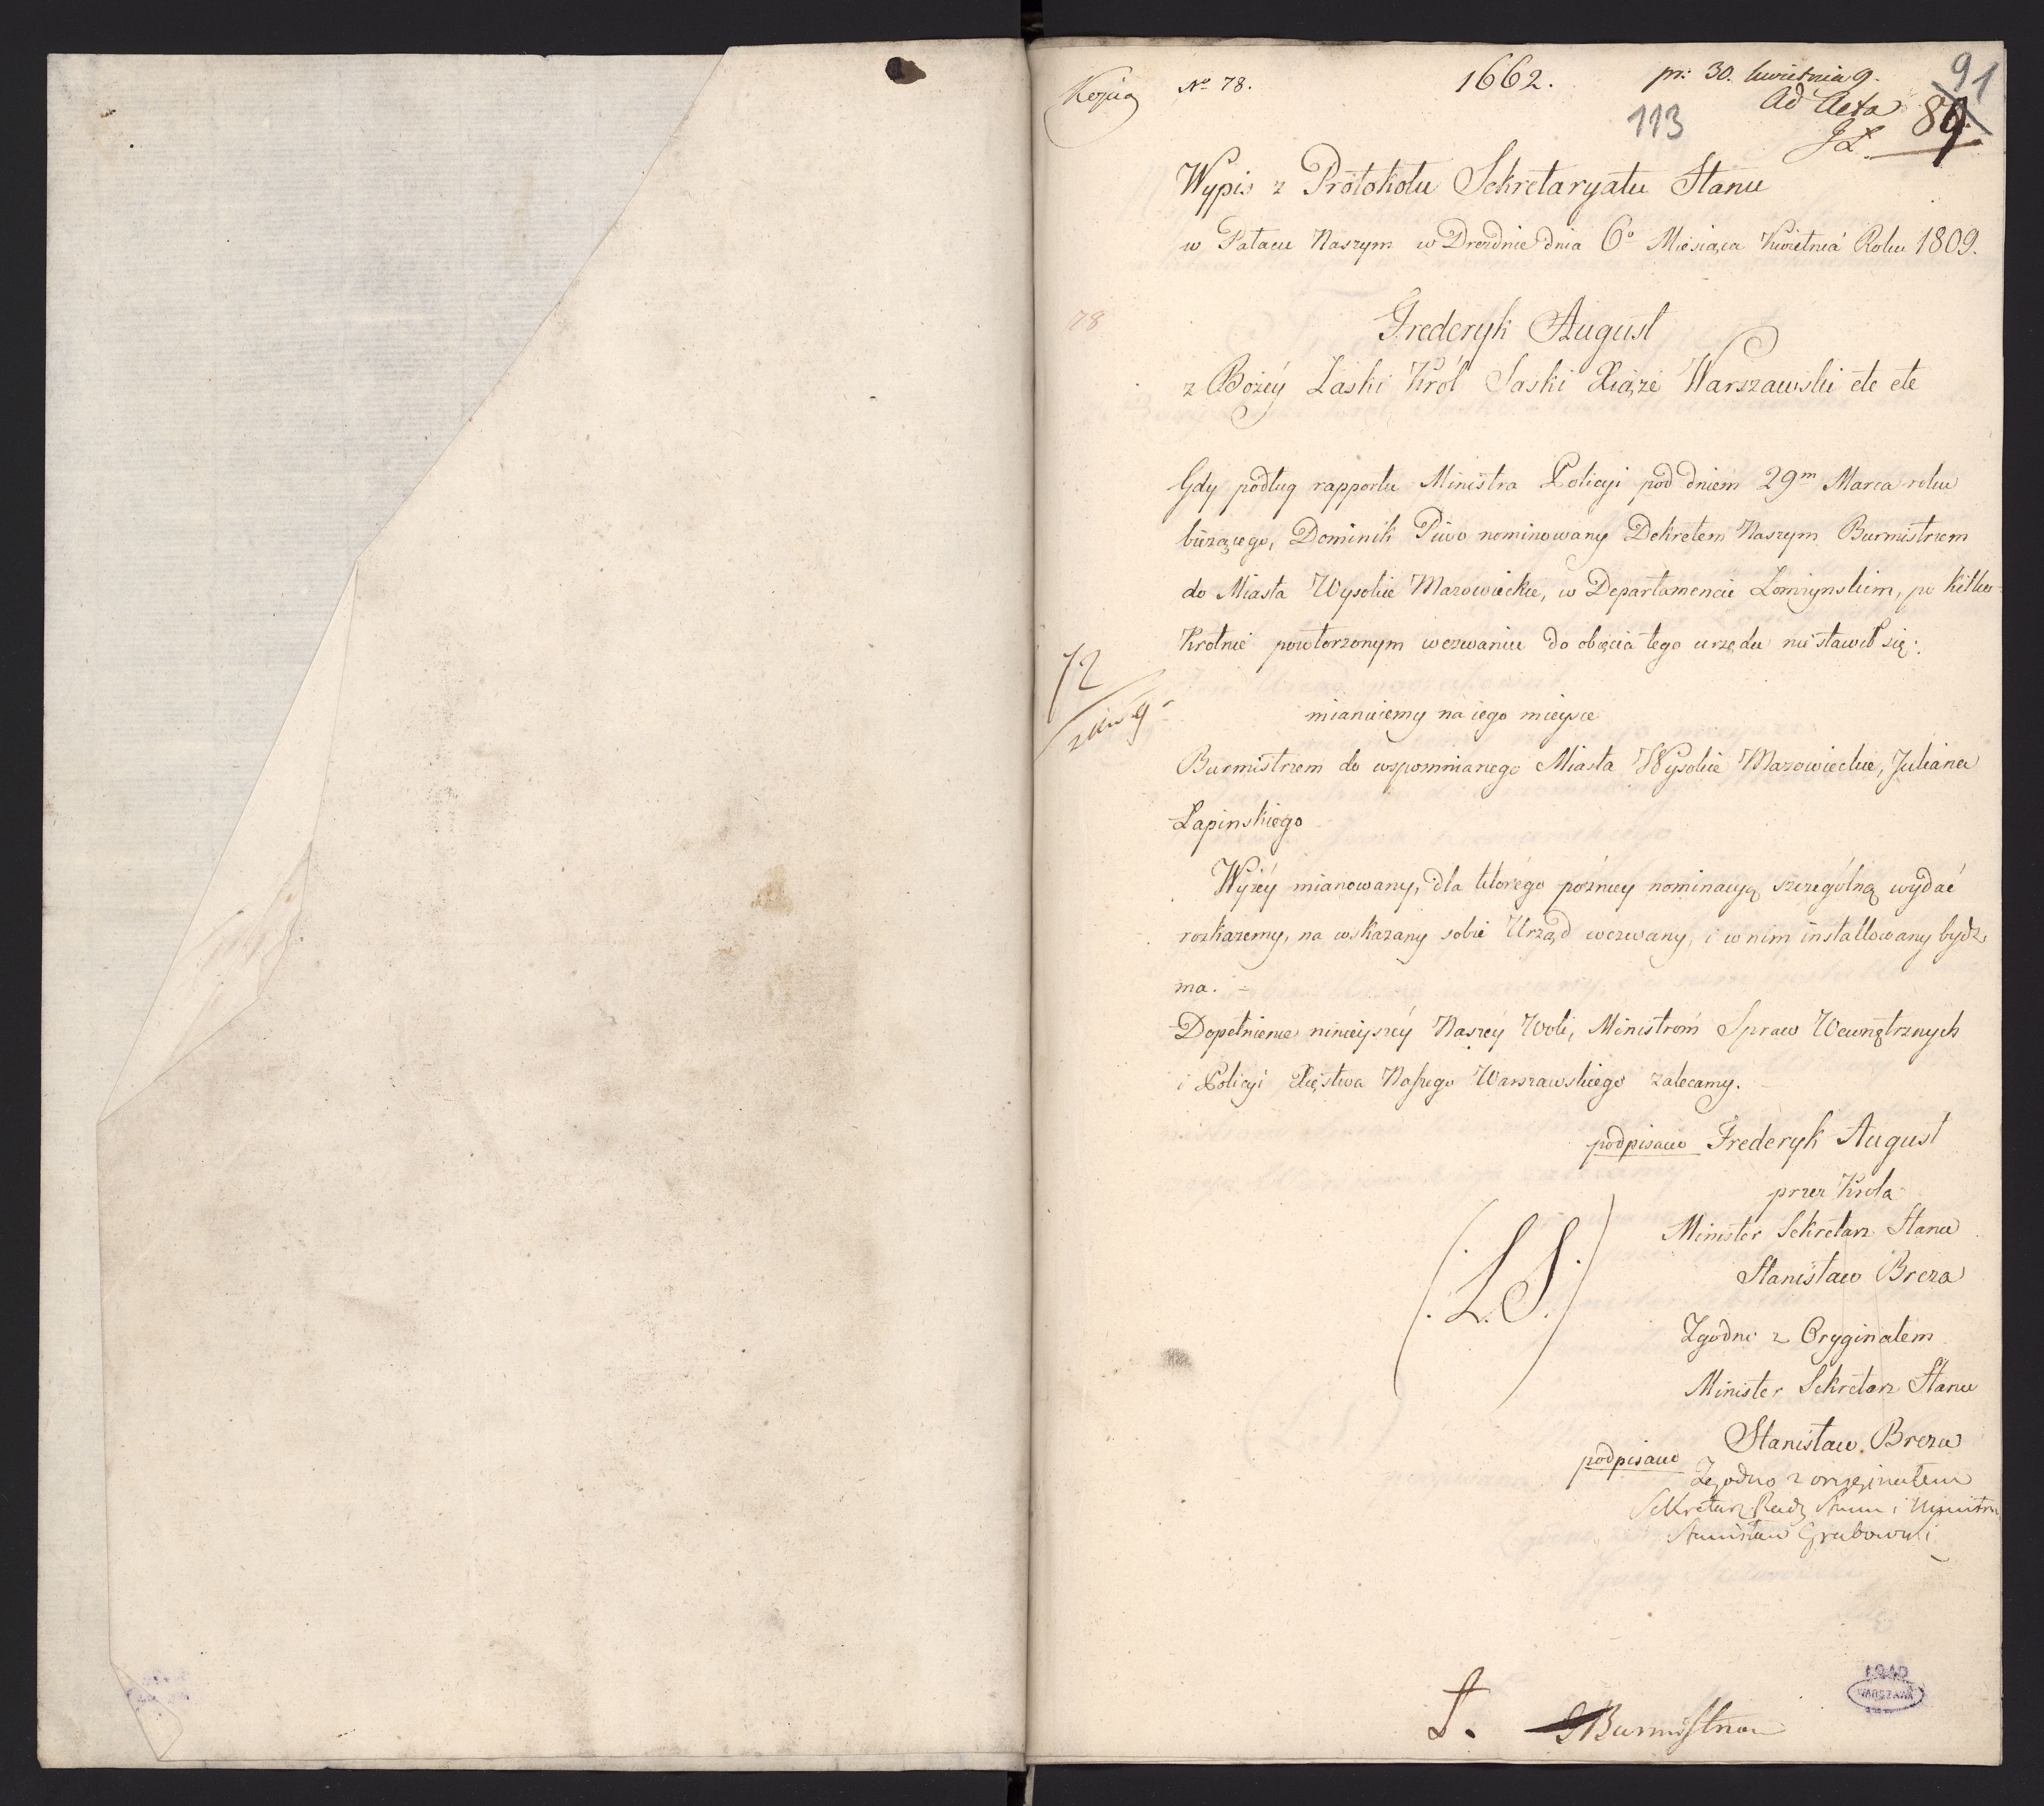 Kopia
No 78.
1662.
pr: 30. kwietnia 9.
91
Ad Acta
89
113
Wypis z Protokołu Sekretaryatu Stanu
w Pałacu Naszym w Dreźdnie dnia 6o Miesiąca Kwietnia Roku 1809.
78
Frederyk August
z Bożey Łaski Król Saski Xiąże Warszawski etc etc
Gdy podług rapportu Ministra Policyi pod dniem 29m Marca roku
bieżącego, Dominik Piwo nominowany Dekretem Naszym Burmistrzem
do Miasta Wysokie Mazowieckie, w Departamencie Łomżynskim, po kilku-
krotnie powtorzonym wezwaniu do obięcia tego urzędu nie stawił się;
72
mianuiemy na iego mieysce
Burmistrzem do wspomnianego Miasta Wysokie Mazowieckie, Juliana
Łapinskiego
Wyżey mianowany, dla którego późniey nominacyą szczególną wydać
rozkażemy, na wskazany sobie Urząd wezwany, i w nim installowany bydź
ma. -
Dopełnienie ninieyszéy Naszéy Woli, Ministrom Spraw Wewnętrznych
i Policyi Xięstwa Naszego Warszawskiego zalecamy.
podpisano Frederyk August
przez Króla
Minister Sekretarz Stanu
(L.S.)
Stanisław Breza
Zgodno z Oryginałem
Minister Sekretarz Stanu
podpisano Stanisław Breza
Zgodno z oryginałem
Sekretarz Rady Stanu i Ministrow
Stanisław Grabowski
AGAD
WARSZAWA
Burmistrza